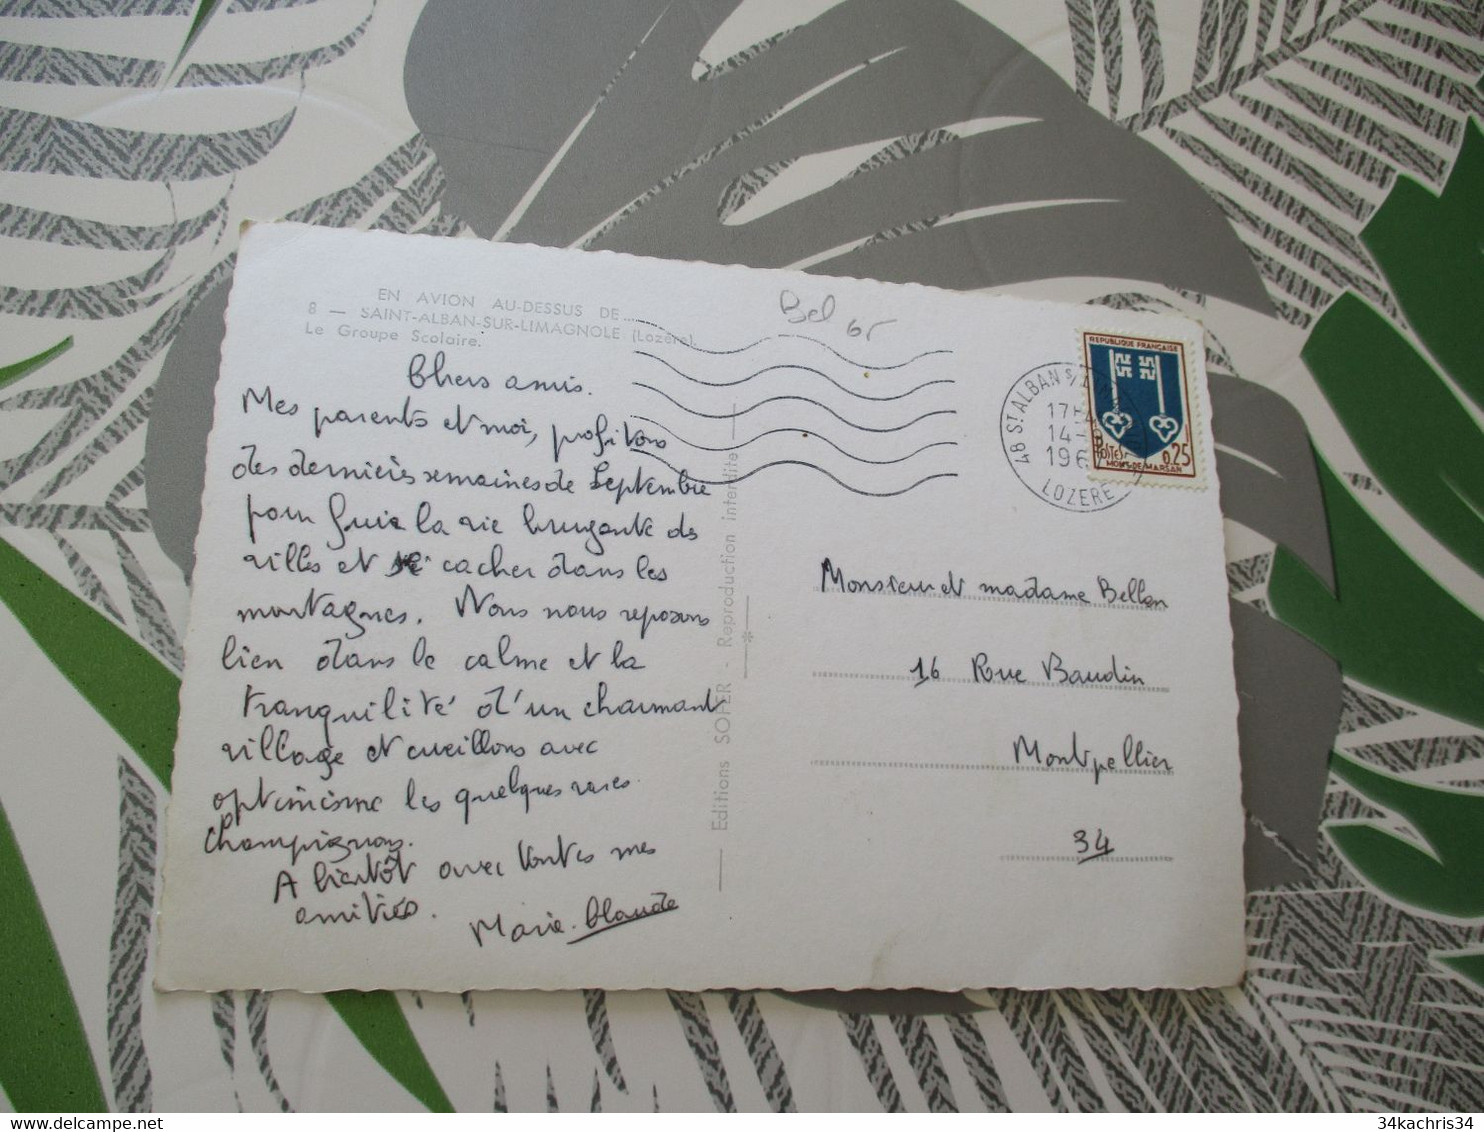 EN AVION AU-DESSUS DE......
8 — SAINT-ALBAN-SUR-LIMAGNOLE (Lozère).
Le Groupe Scolaire.
Bel 65
Chers amis.
Mes parents et moi, profitons
des dernières semaines de Septembre
pour fuir la vie bruyante des
villes et se cacher dans les
montagnes. Nous nous reposons
bien dans le calme et la
tranquilité d'un charmant
village et cueillons avec
optimisme les quelques rares
champignons.
A bientôt avec toutes mes
amitiés.
Marie-Claude
Editions SOFER - Reproduction interdite
REPUBLIQUE FRANÇAISE
POSTES 0,25
MONT-DE-MARSAN
48 ST ALBAN S/
17H
14-
196
LOZERE
Monsieur et madame Bellon
16 Rue Baudin
Montpellier
34
34kachris34